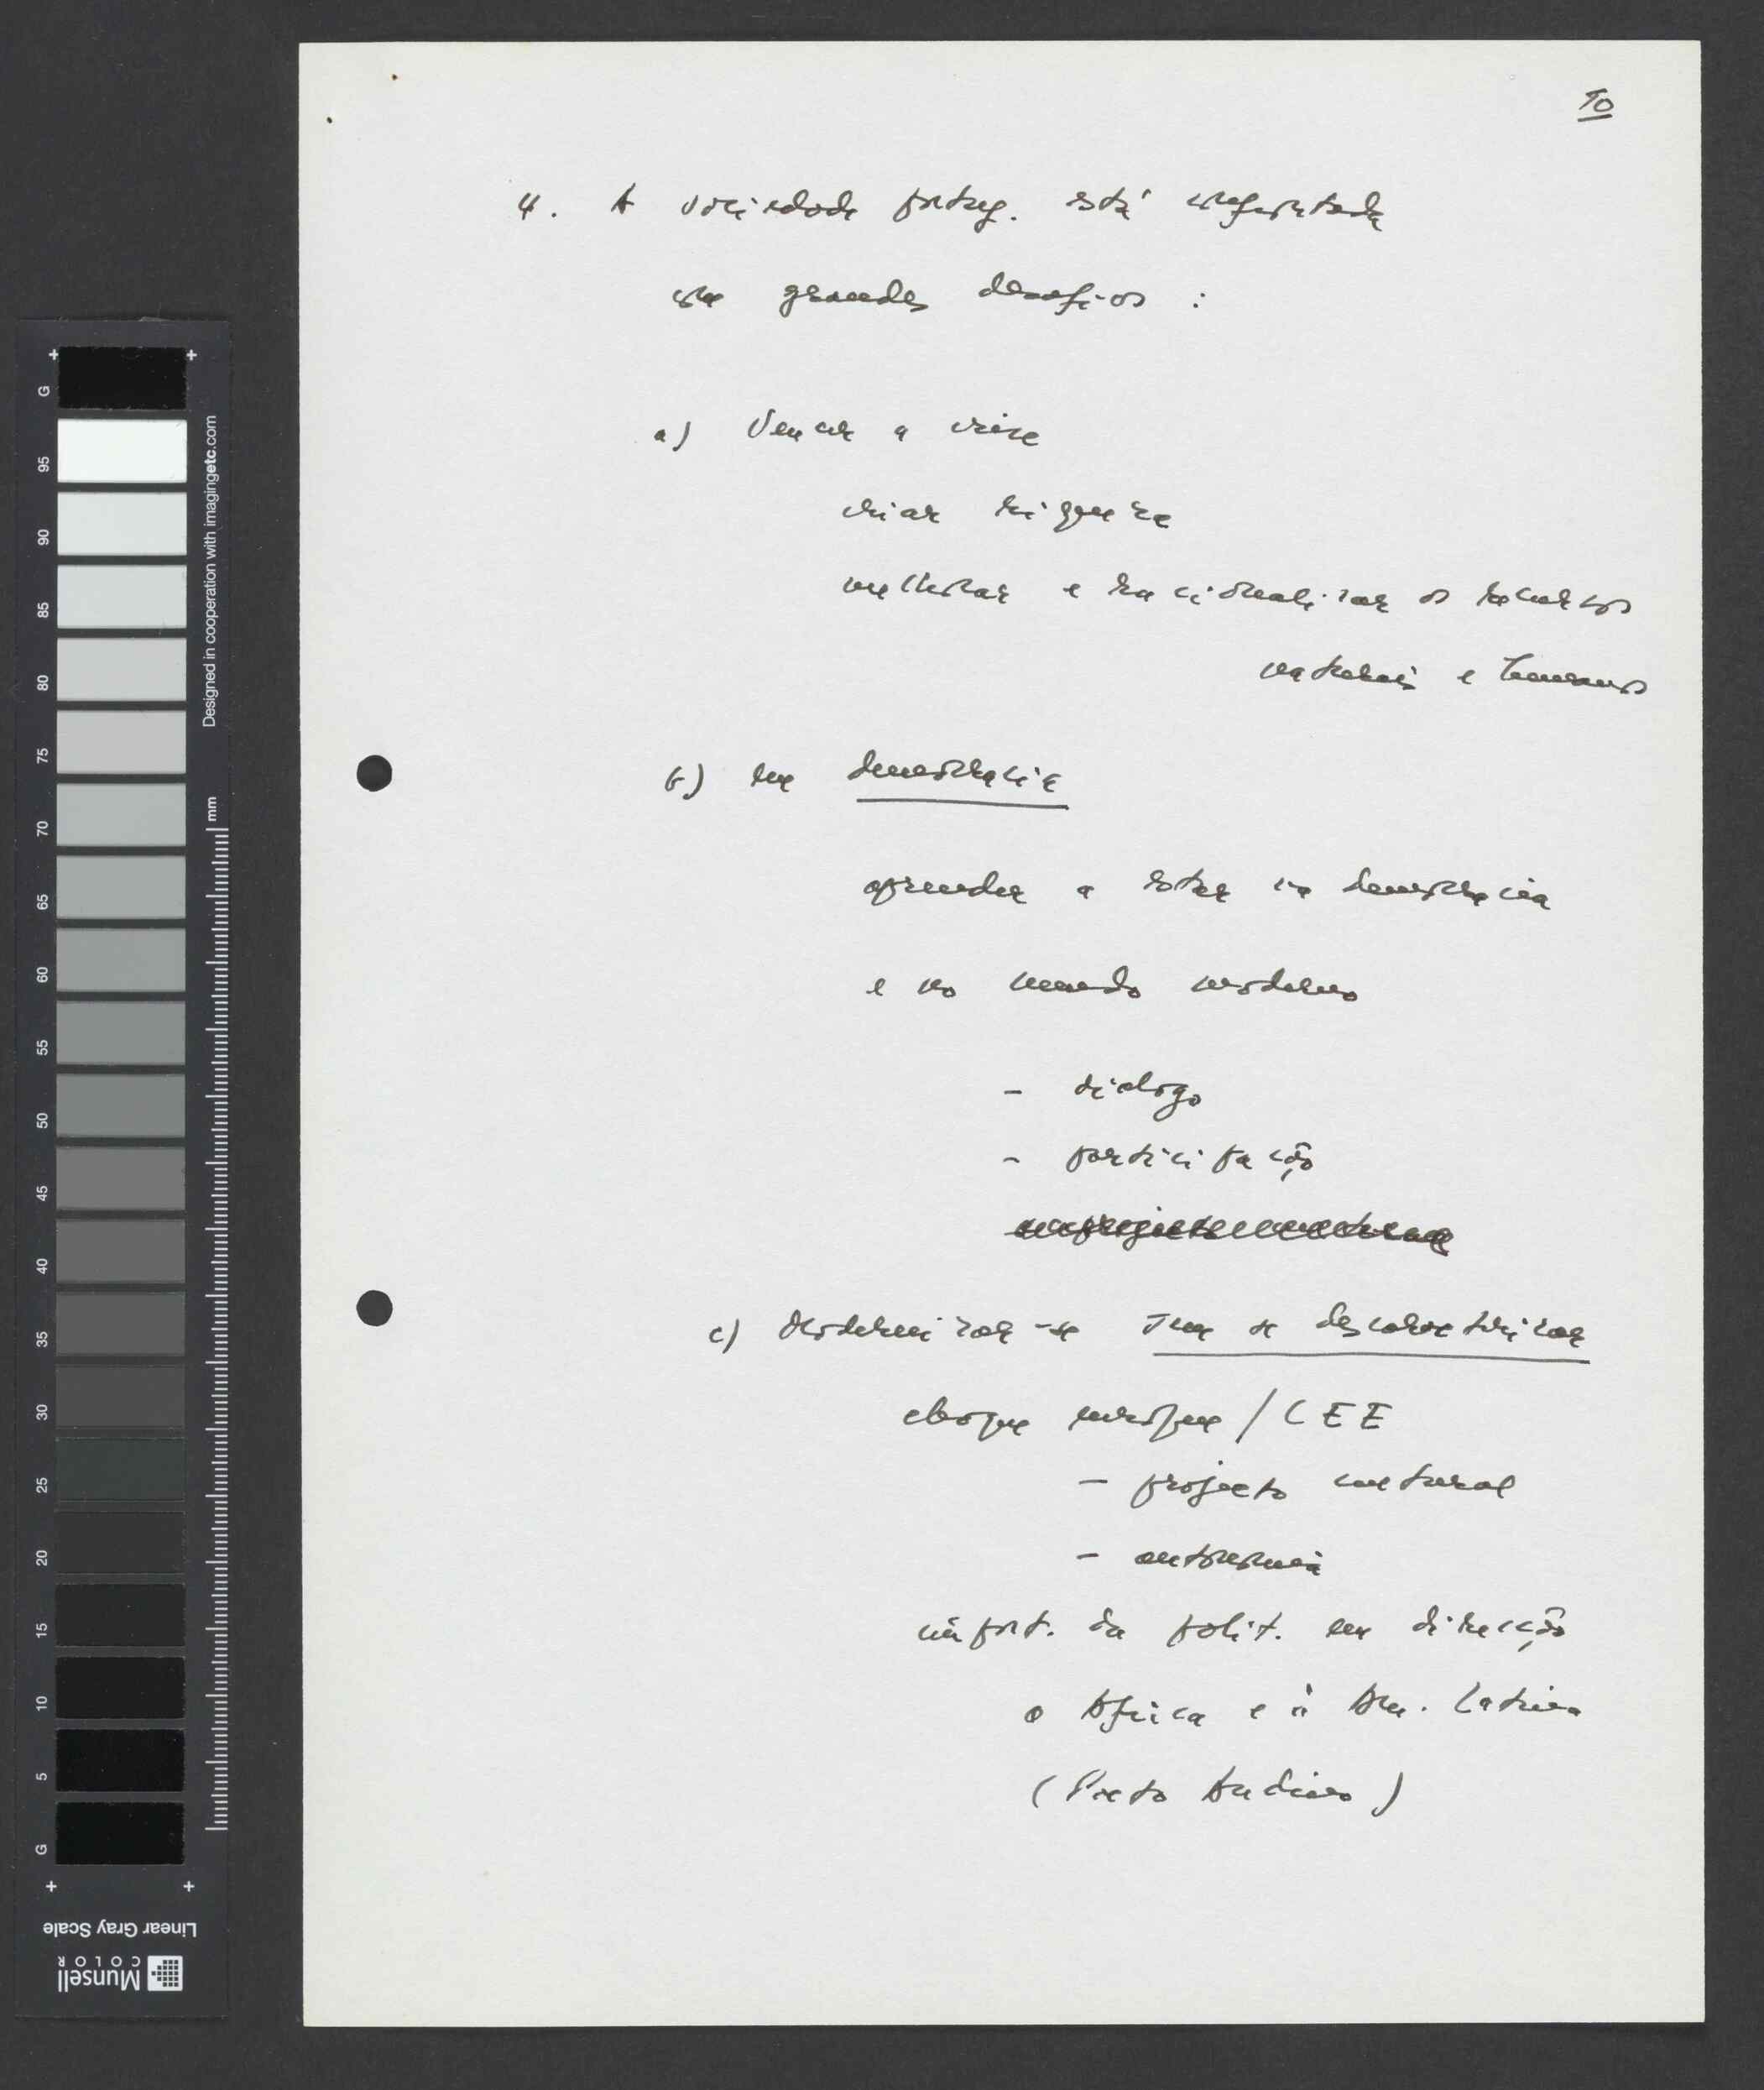 10
4. A sociedade portug. está confrontada
com grandes desafios :
a) Vencer a crise
criar riqueza
melhorar e racionalizar os recursos
materiais e humanos
b) em democracia
aprender a estar na democracia
e no mundo moderno
- diálogo
- participação
c) Modernizar-se sem se descaracterizar
choque europeu / CEE
- projecto cultural
- autonomia
import. da polit. em direcção
a África e à Am. Latina
(Pacto Andino)
G
95
90
85
80
75
70
65
60
55
50
45
40
35
30
25
20
15
10
5
G
Designed in cooperation with imagingetc.com
mm
Linear Gray Scale
Munsell
COLOR